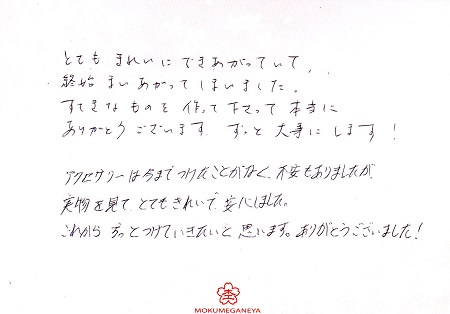 とても きれいに できあがっていて、
終始 まいあがって しまいました。
すてきな ものを 作って 下さって 本当に
ありがとう ございます. ずっと 大事に します!
アクセサリーは今までつけたことがなく、不安もありましたが、
実物を見て、とてもきれいで、安心しました。
これから ずっとつけていきたいと 思います。ありがとうございました!
MOKUMEGANEYA